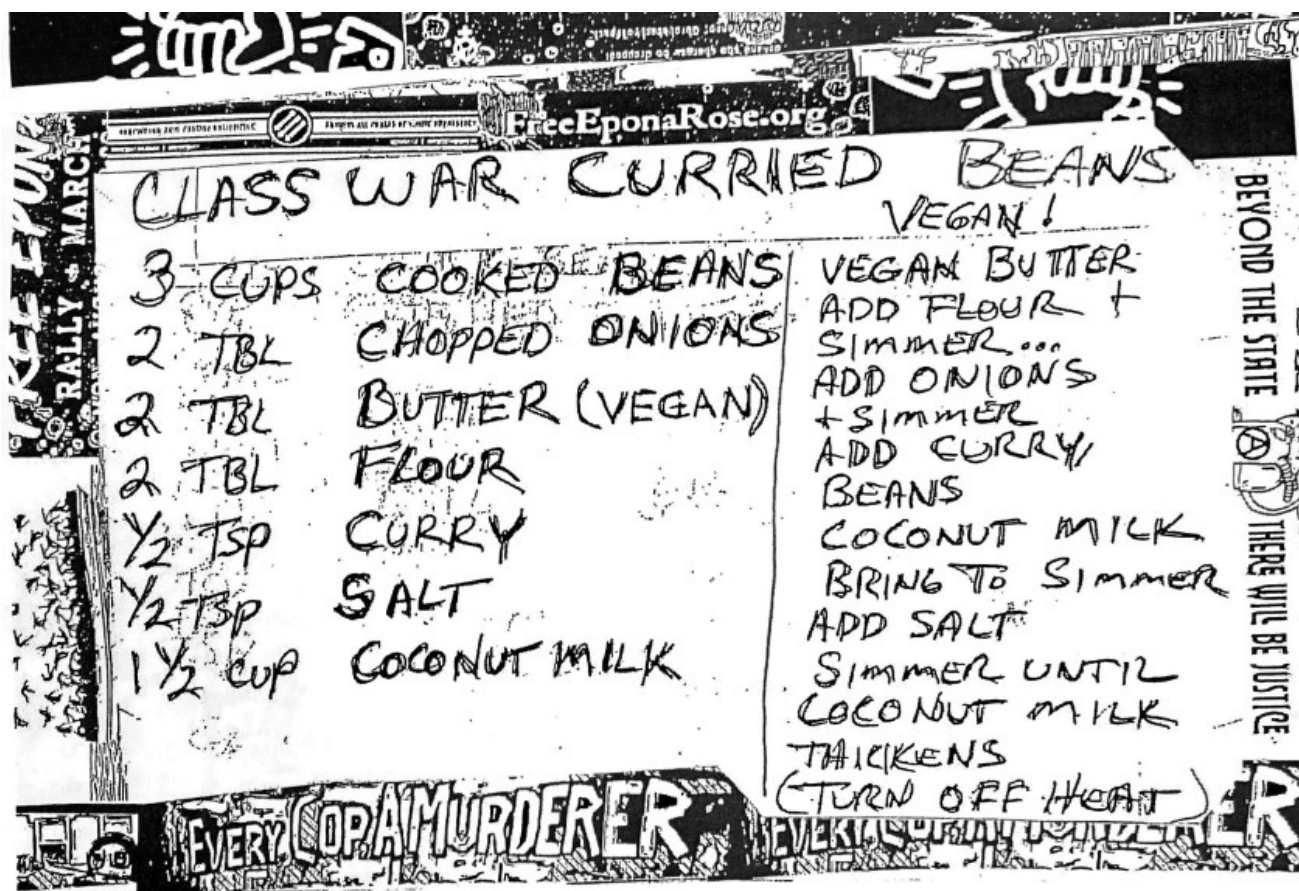 FreeEponaRose.org
RALLY & MARCH
CLASS WAR CURRIED BEANS
VEGAN!
3 CUPS COOKED BEANS
2 TBL CHOPPED ONIONS
2 TBL BUTTER (VEGAN)
2 TBL FLOUR
1/2 TSP CURRY
1/2 TSP SALT
1 1/2 CUP COCONUT MILK
VEGAN BUTTER
ADD FLOUR +
SIMMER...
ADD ONIONS
+ SIMMER
ADD CURRY,
BEANS
COCONUT MILK
BRING TO SIMMER
ADD SALT
SIMMER UNTIL
COCONUT MILK
THICKENS
(TURN OFF HEAT)
BEYOND THE STATE THERE WILL BE JUSTICE
EVERY COP A MURDERER